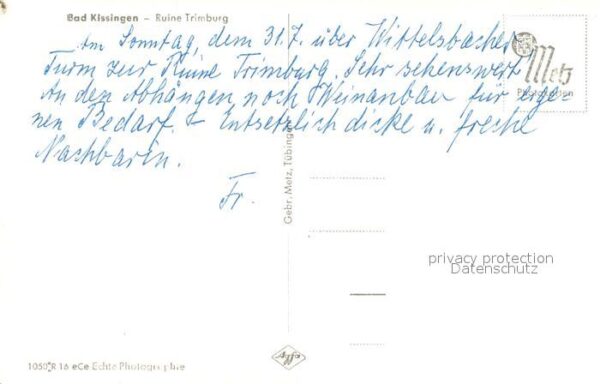 Bad Kissingen – Ruine Trimburg
Am Sonntag, dem 31.7. über Wittelsbacher
Turm zur Ruine Trimburg. Sehr sehenswert
An den Abhängen noch Weinanbau für eige-
nen Bedarf. – Entsetzlich dicke u. freche
Nachbarin.
Fr.
Metz
Postkarten
Gebr. Metz, Tübingen
privacy protection
Datenschutz
effgr
1050 R 16 eCe Echte Photographie